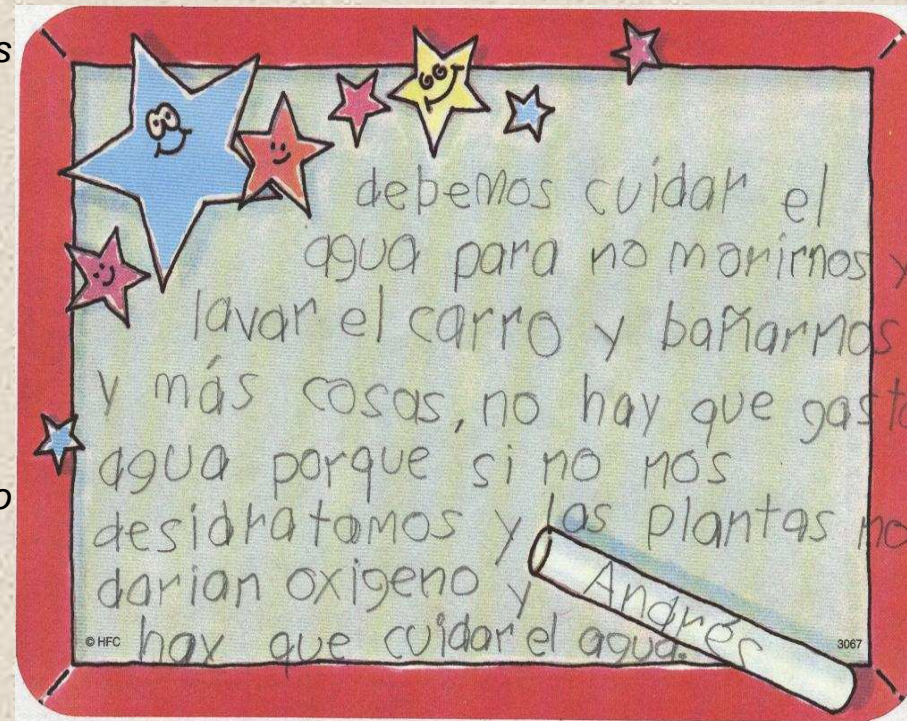 s
debemos cuidar el
agua para no morirnos y
lavar el carro y bañarnos
y más cosas, no hay que gasta
agua porque si no nos
desidratamos y las plantas no
o
darian oxigeno y Andrés
hay que cuidar el agua.
© HFC 3067